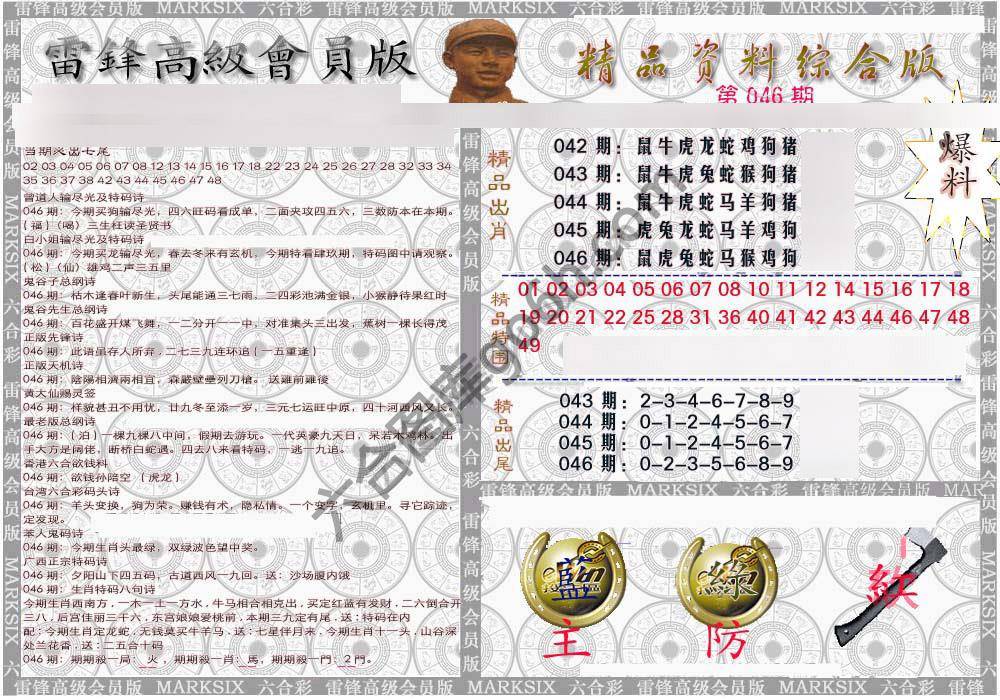 雷锋高级会员版 MARKSIX 六合彩 雷锋高级会员版 MARKSIX 六合彩 雷锋高级会员版
雷鋒高級會員版
精品资料综合版
第 046 期
爆料
02 03 04 05 06 07 08 12 13 14 15 16 17 18 22 23 24 25 26 27 28 32 33 34
35 36 37 38 42 43 44 45 46 47 48
曾道人输尽光及特码诗
046 期：今期买狗输尽光，四六旺码看成单，二面夹攻四五六，三数防本在本期。
{福}（喝）三生枉读圣贤书
白小姐输尽光及特码诗
046 期：今期买龙输尽光，春去冬来有玄机，今期特看肆玖期，特码图中请观察。
{松}（仙）雄鸡二声三五里
鬼谷子总纲诗
046 期：枯木逢春叶新生，头尾能通三七雨，二四彩池满金银，小猴静待果红时
鬼谷先生总纲诗
046 期：百花盛开煤飞舞，一二分开一一中，对准集头三出发，蕉树一棵长得茂
正版先锋诗
046 期：此语虽存人所弃．二七三九连环追{一五重逢}
正版天机诗
046 期：陰陽相濟兩相宜，森嚴壁壘列刀槍。 送雞前雞後
黄大仙赐灵签
046 期：样貌甚丑不用忧，廿九冬至添一岁，三元七运旺中原，四十河西风又长。
最老版总纲诗
046 期：{泊}一棵九棵八中间，假期去游玩。一代英豪九天日，呆若木鸡林。出
手大方是阔佬，断桥白蛇遇。四去八来看特码，一逃一九追。
香港六合欲钱料
046 期：欲钱孙陪空 {虎龙}
台湾六合彩码头诗
046 期：羊头变换，狗为荣。赚钱有术，隐私情。一个变字，玄机里。寻它踪迹，
定发现。
苯人鬼码诗
046 期：今期生肖头最绿，双绿波色望中奖。
广西正宗特码诗
046 期：夕阳山下四五码，古道西风一九回。送：沙场腹内饿
046 期：生肖特码八句诗
今期生肖西南方，一木一土一方水，牛马相合相克出，买定红蓝有发财，二六倒合开
三八，后宫佳丽三千六，东宫娘娘爱桃前．本期三九定有尾．送：特码在内
配：今期生肖定龙蛇．无钱莫买牛羊马．送：七星伴月来．今期生肖十一头．山谷深
处兰花香．送：二五合十码
046 期：期期殺一局：火，期期殺一肖：馬，期期殺一門：2 門。
精品出肖
042 期：鼠牛虎龙蛇鸡狗猪
043 期：鼠牛虎兔蛇猴狗猪
044 期：鼠牛虎蛇马羊狗猪
045 期：虎兔龙蛇马羊鸡狗
046 期：鼠虎兔蛇马猴鸡狗
精品特围
01 02 03 04 05 06 07 08 10 11 12 14 15 16 17 18
19 20 21 22 25 28 31 36 40 41 42 43 44 46 47 48
49
精品出尾
043 期：2-3-4-6-7-8-9
044 期：0-1-2-4-5-6-7
045 期：0-1-2-4-5-6-7
046 期：0-2-3-5-6-8-9
雷锋高级会员版 MARKSIX 六合彩 雷锋高级会员版
藍
主
綠
防
六合图库
雷锋高级会员版 MARKSIX 六合彩 雷锋高级会员版 MARKSIX 六合彩 雷锋高级会员版